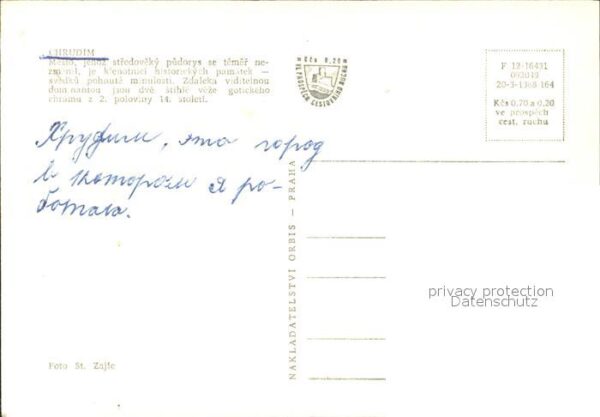 CHRUDIM
Město, jehož středověký půdorys se téměř ne-
změnil, je klenotnicí historických památek —
svědků pohnuté minulosti. Zdaleka viditelnou
dominantou jsou dvě štíhlé věže gotického
chrámu z 2. poloviny 14. století.
Kčs 0,20
VE PROSPĚCH CESTOVNÍHO RUCHU
F 12-16431
092019
20-3-1368 164
Kčs 0,70 a 0,20
ve prospěch
cest. ruchu
Хрудим, это город
в котором я ро-
ботала.
NAKLADATELSTVÍ ORBIS — PRAHA
privacy protection
Datenschutz
Foto St. Zajíc